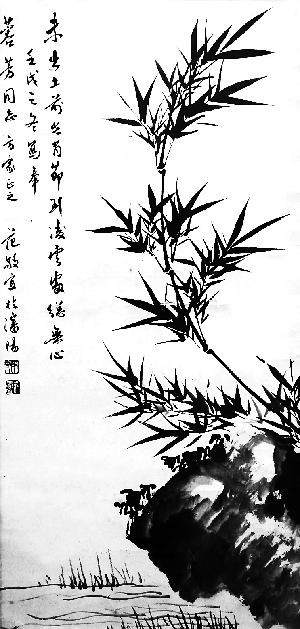 未出土前先有節到凌雲處總無心
壬戌之冬寫奉
蓉芳同志方家正之 范敬宜於瀋陽